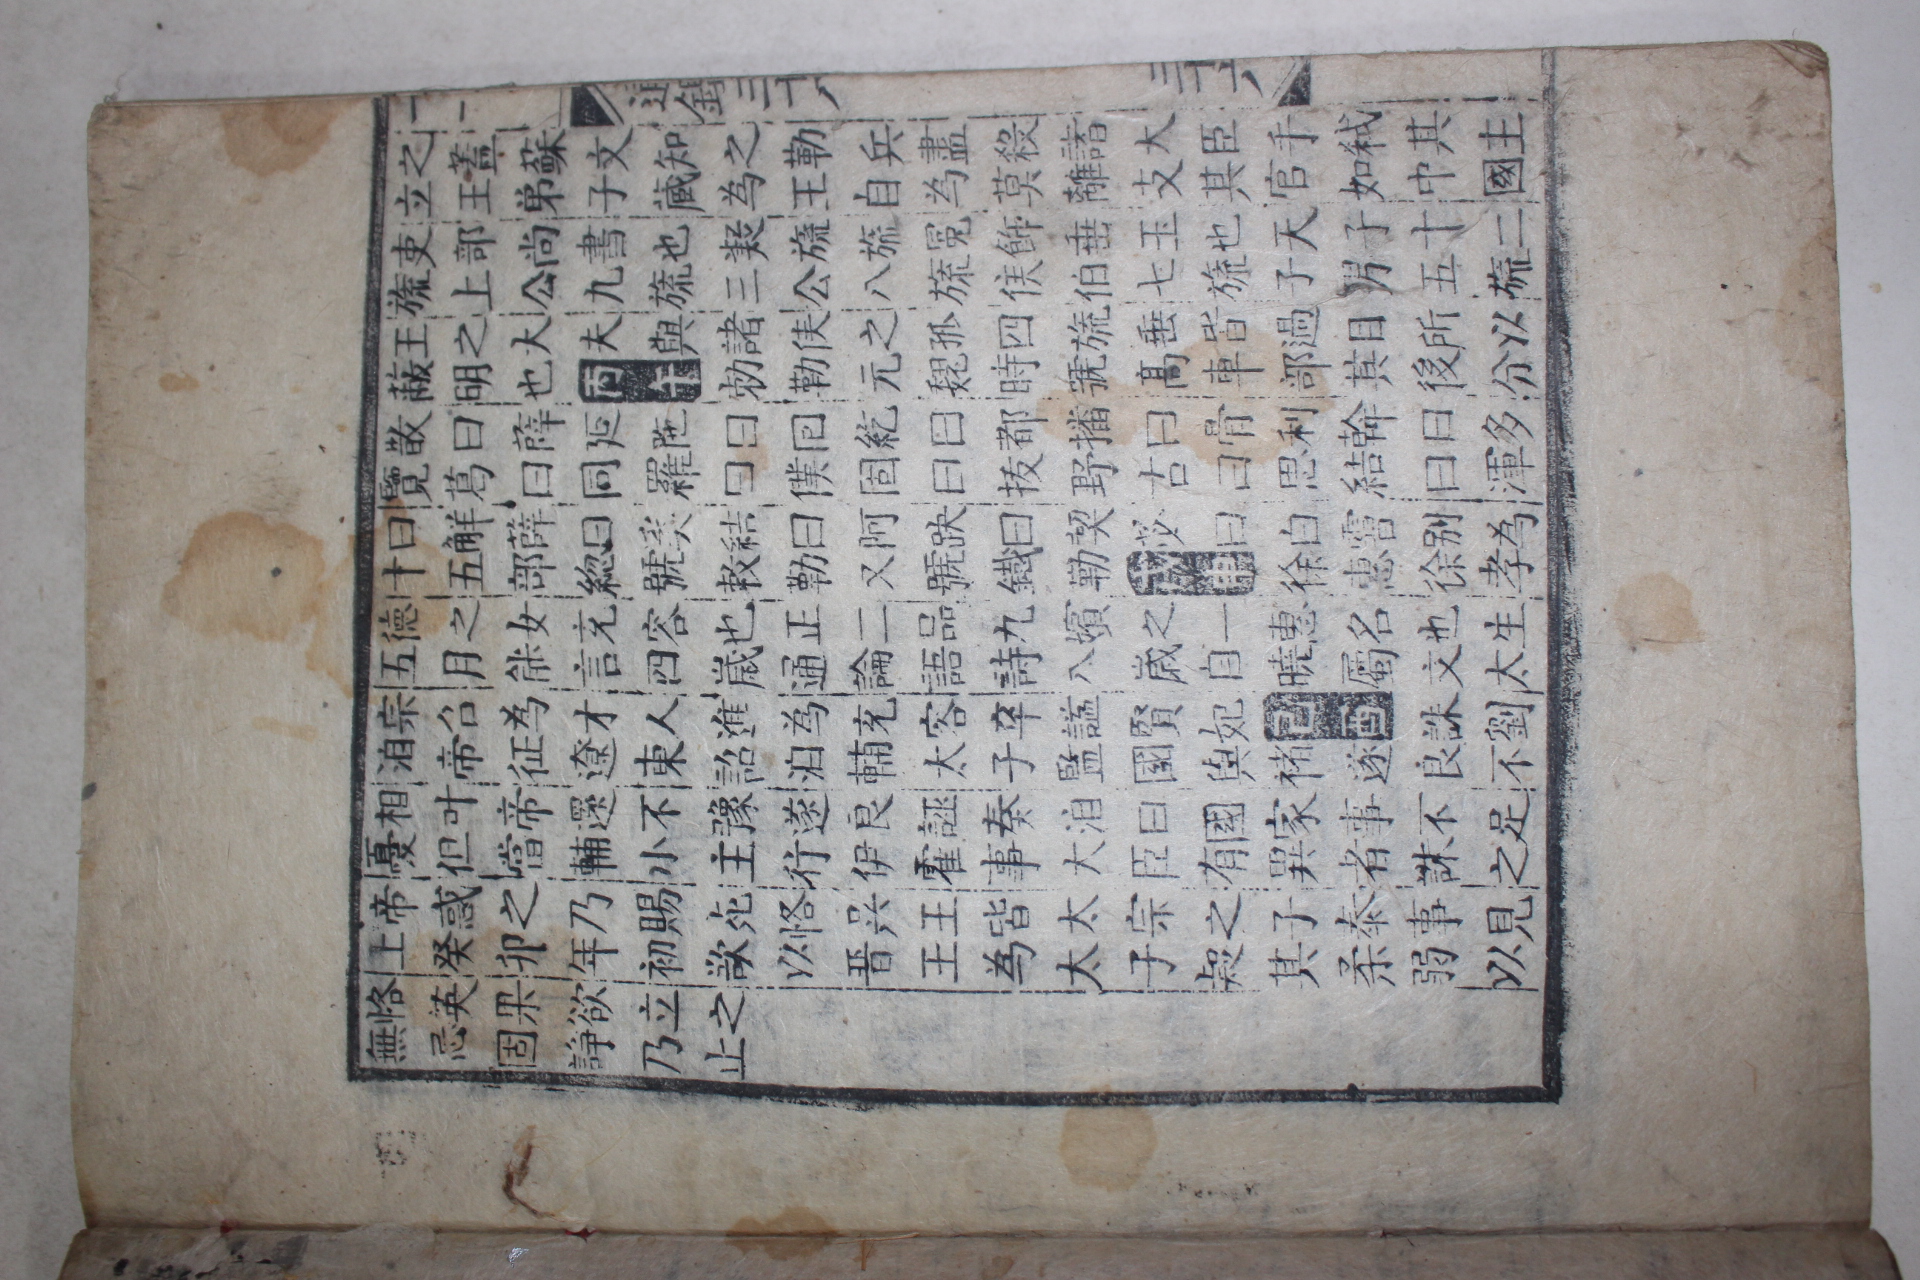 通鑑三十八
三十六
之蓋蘇文知之勒兵盡殺諸大臣手弒其主
立王弟子蔵為王自為莫離支其官如中國
吏部尚書也 旒冕飾垂玉也天子十二
旒上公九旒三公八旒侯伯七旒子男五旒
王之大夫與諸侯之孤四旒垂皆過目所以
蔽明也丙午勑勒元魏時號髙車部其後分
散曰薛延陁曰回紇曰都播曰骨利幹曰多
覽葛曰同羅曰僕固曰拔野古曰思結曰渾
曰斛薛曰奚結曰阿跌曰契苾曰白霫别為
十五部総號敕勒又號鐵勒戊申徐惠徐孝
德之女充容也正二品九嬪之一惠名也生
五月能言四歲通論語詩八歲自曉屬文太
宗召為才人進為充容卒謚賢妃己酉誅劉
洎帝征遼東詔洎輔太子監國與褚遂良不
相叶帝還不豫遂良誣奏洎曰國家事不足
憂但當輔小主行伊霍事大臣有異者誅之
帝惑之乃賜死恪吳王皆太宗之子泰事見
上癸卯年初欲以晋王為太子疑其柔弱以
恪英果欲立之
無忌固諍乃止